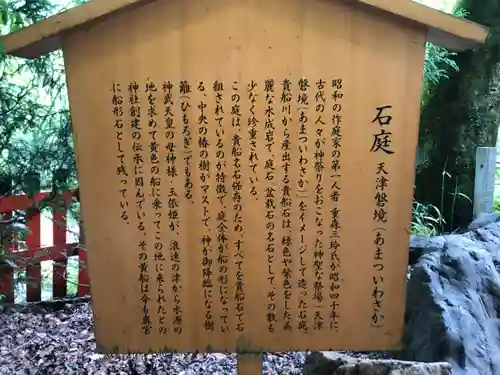 石庭 天津磐境(あまついわさか)
昭和の作庭家の第一人者 重森三玲氏が昭和四十年に、
古代の人々が神祭りをおこなった神聖な祭場「天津
磐境(あまついわさか)」をイメージして造った石庭。
貴船川から産出する貴船石は、緑色や紫色をした美
麗な水成岩で、庭石、盆栽石の名石として、その数も
少なく珍重されている。
この庭は、貴船名石保存の庭で、すべて貴船石で
組まれているのが特徴で、庭全体が船の形になってい
る。中央の椿の樹がマストで、神が御降臨になる樹
籬(ひもろぎ)でもある。
神武天皇の母神様・玉依姫が、浪速の津から水源の
地を求めて黄色の船に乗って、この地に来られたとの
神社創建の伝承に因んでいる。その黄船は今も奥宮
に船形石として残っている。